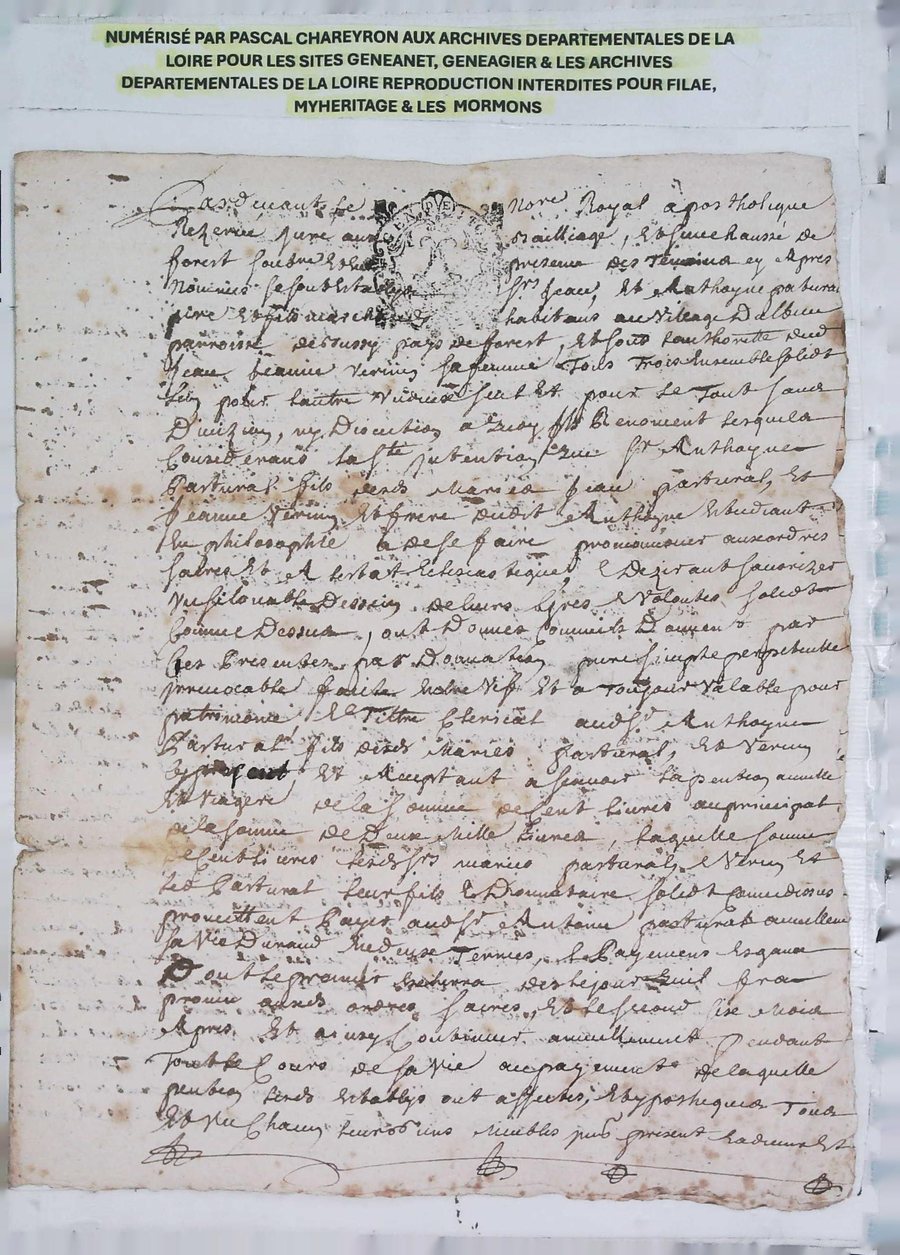 NUMÉRISÉ PAR PASCAL CHAREYRON AUX ARCHIVES DEPARTEMENTALES DE LA
LOIRE POUR LES SITES GENEANET, GENEAGIER & LES ARCHIVES
DEPARTEMENTALES DE LA LOIRE REPRODUCTION INTERDITES POUR FILAE,
MYHERITAGE & LES MORMONS
Pardevant le nore Royal apostholique
Rezervé juré aux bailliage, et senechaussé de
forest soubzne et en presence des Temoins ey Apres
nommés se sont establys Srs Jean, et Anthoyne patural
pere et fils marchands habitans au village Dalbieu
parroisse de Boussy pays de forest, et sous lauthorette dud
Jean Jeanne Verrin sa femme Tous Trois Ensemble solidt
lun pour lautre seul et pour le Tout sans
Divizion, ny Discution a quoy Ils Renoncent lesquels
Considerans la Ste Intention que Sr Anthoyne
Pastural fils desds Mariés Jean pastural, et
Jeanne Verrin et frere dudit Anthoyne Estudiant
En philosophie a de se faire promouvoir aux ordres
sacrés et A lestat Eclesiastique, & Dezirant favorizer
Un si louable Dessein de leurs Grés & Volontés solidt
Comme Dessus, ont Donnés Comme ils Donnent par
Ces Presentes par Donnation pure simple perpetuelle
Irrevocable faite entre vif et a Toujour valable pour
patrimoine & Tiltre Clerical audt Sr Anthoyne
Pastural fils desds Mariés pastural, et Verrin
Icy present et Acceptant a scavoir la pention annuelle
et viagere de la somme de Cent livres au principal
de la somme de Deux Mille livres, laquelle somme
de Cent livres lesds Srs mariés pastural, & Verrin et
led Pastural leur fils & Donnataire solidt Comme dessus
promettent Payer audt Sr Antoine pastural annuellement
sa vie Durand En deux Termes, & Payemens Esgaux
Dont le premier des le jour quil sera
promeu auxds ordres sacrés, et le second six Mois
Apres et ainsy Continuer annuellement Pendant
Tout le Cours de sa vie au payement de laquelle
pention lesds Establys ont affectés, et hypothequés Tous
et un Chacun leurs biens Meubles presents et